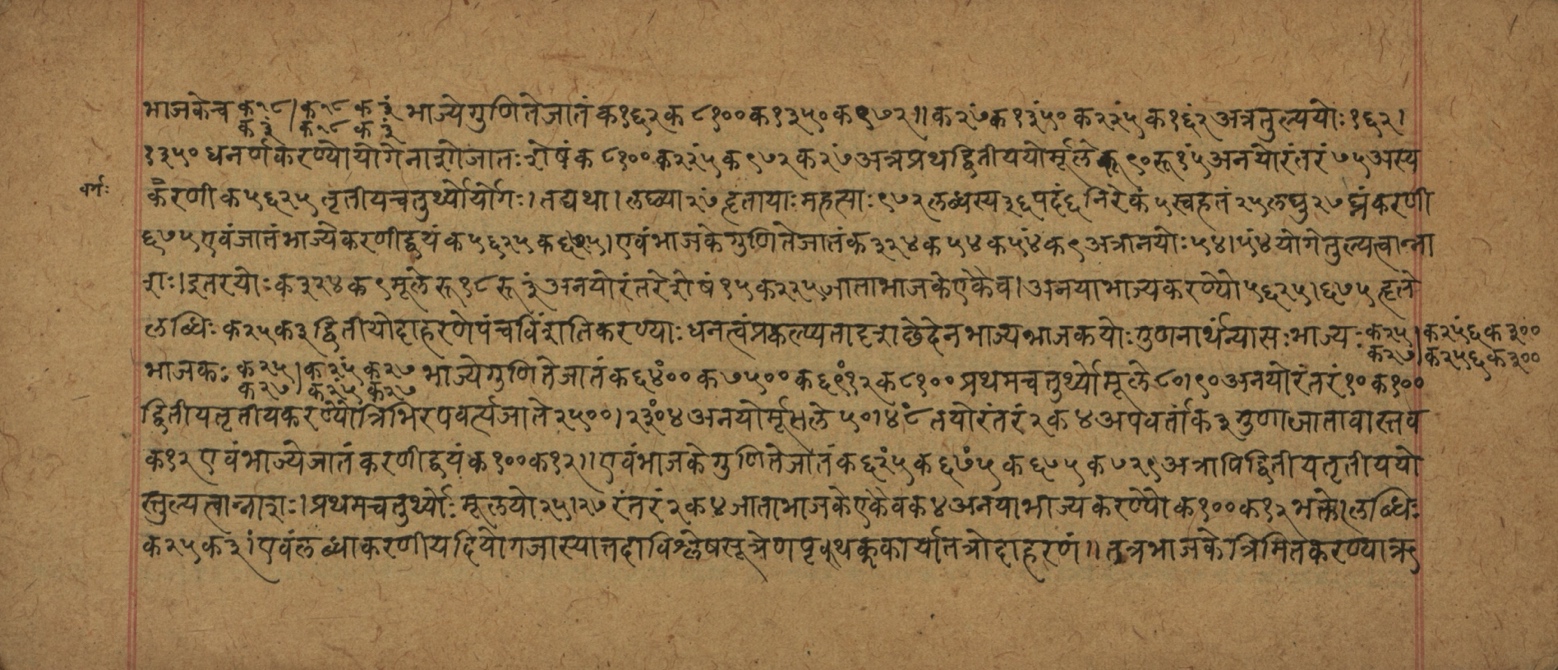 भाजकेच क १८। क १८ क ३ं भाज्ये गुणिते जातं क १६२ क ८१०० क १३५० क ९७२।। क २७ं क १३ं५० क २२ं५ क १६ं२ अत्र तुल्ययोः १६२।
क ३ं क १८ क ३ं
१३५० धनर्णकरण्योर्योगे नाशे जातः शेषं क ८१०० क २२ं५ क ९७२ क २७ं अत्र प्रथद्वितीययोर्मूले रू ९० रू १ं५ अनयोरंतरं ७५ अस्य
वर्गः
करणी क ५६२५ तृतीयचतुर्थ्योर्योगः। तद्यथा। लघ्व्या २७ं हृतायाः महत्याः ९७२ लब्धस्य ३६ं पदं ६ं निरेकं ५ स्वहतं २५ लघु २७ घ्नं करणी
६७५ एवं जातं भाज्ये करणीद्वयं क ५६२५ क ६७५। एवं भाजके गुणिते जातं क ३२४ क ५४ क ५ं४ क ९ अत्रानयोः ५४। ५ं४ योगे तुल्यत्वान्ना
शः। इतरयोः क ३२४ क ९ मूले रू १८ रू ३ं अनयोरंतरे शेषं १५ क २२५ जाता भाजके एकैव। अनया भाज्यकरण्यो ५६२५। ६७५ हृते
लब्धिः क २५ क ३ द्वितीयोदाहरणे पंचविंशतिकरण्याः धनत्वं प्रकल्प्य तादृशछेदेन भाज्यभाजकयोः गुणनार्थं न्यासः भाज्यः क २५। क २५ं६ क ३००
क २७। क २५६ क ३००
भाजकः क २५। क २५ं क २७ भाज्ये गुणिते जातं क ६४ं०० क ७५०० क ६९ं१२ क ८१०० प्रथमचतुर्थ्यो मूले ८०। ९० अनयोरंतरं १० क १००
क २७। क २५ क २७
द्वितीयतृतीयकरण्यौ त्रिभिरपवर्त्य जाते २५००। २३ं०४ अनयोर्मूसले ५०। ४ं८ तयोरंतरं २ क ४ अपवर्तांक ३ गुणा जाता वास्तव
क १२ एवं भाज्ये जातं करणीद्वयं क १०० क १२।। एवं भाजके गुणिते जातं क ६२ं५ क ६७ं५ क ६७५ क ७२९ अत्रापि द्वितीयतृतीययो
स्तुल्यत्वान्नाशः। प्रथमचतुर्थ्योः मूलयो २५। २७ रंतरं २ क ४ जाता भाजके एकैव क ४ अनया भाज्यकरण्यौ क १०० क १२ भक्ते। लब्धिः
क २५ क ३। एवं लब्धा करणी यदि योगजा स्यात्तदा विश्लेषसूत्रेण पृथक्कार्या तत्रोदाहरणं।। तत्र भाजके त्रिमितकरण्या ऋ